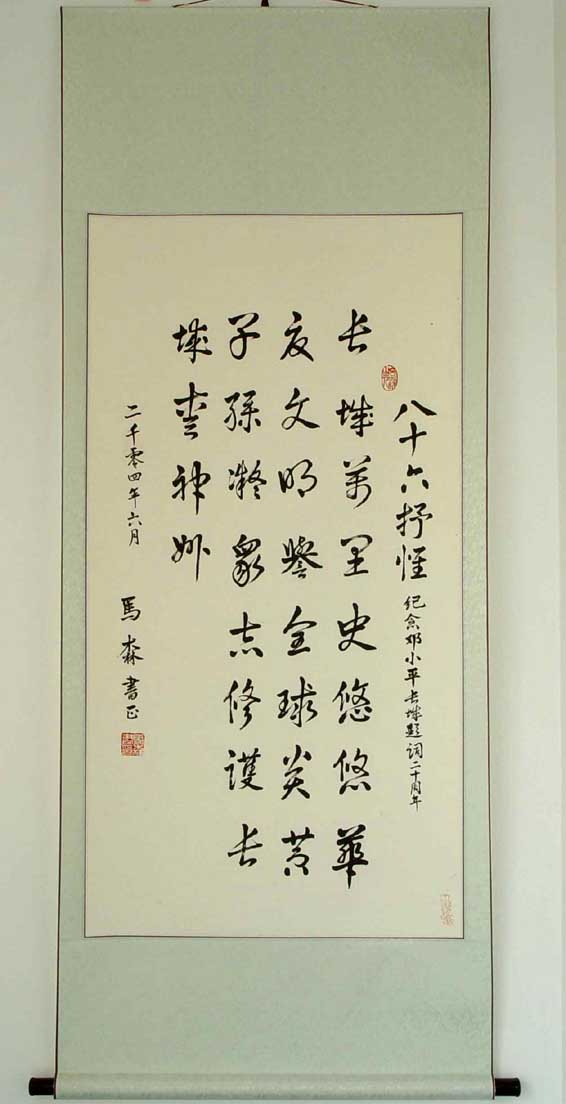 八十六抒懷 纪念邓小平长城题词二十周年
长城萬里史悠悠華
夏文明譽全球炎黄
子孫凝眾志修護长
城神州
二千零四年六月 馬森書正